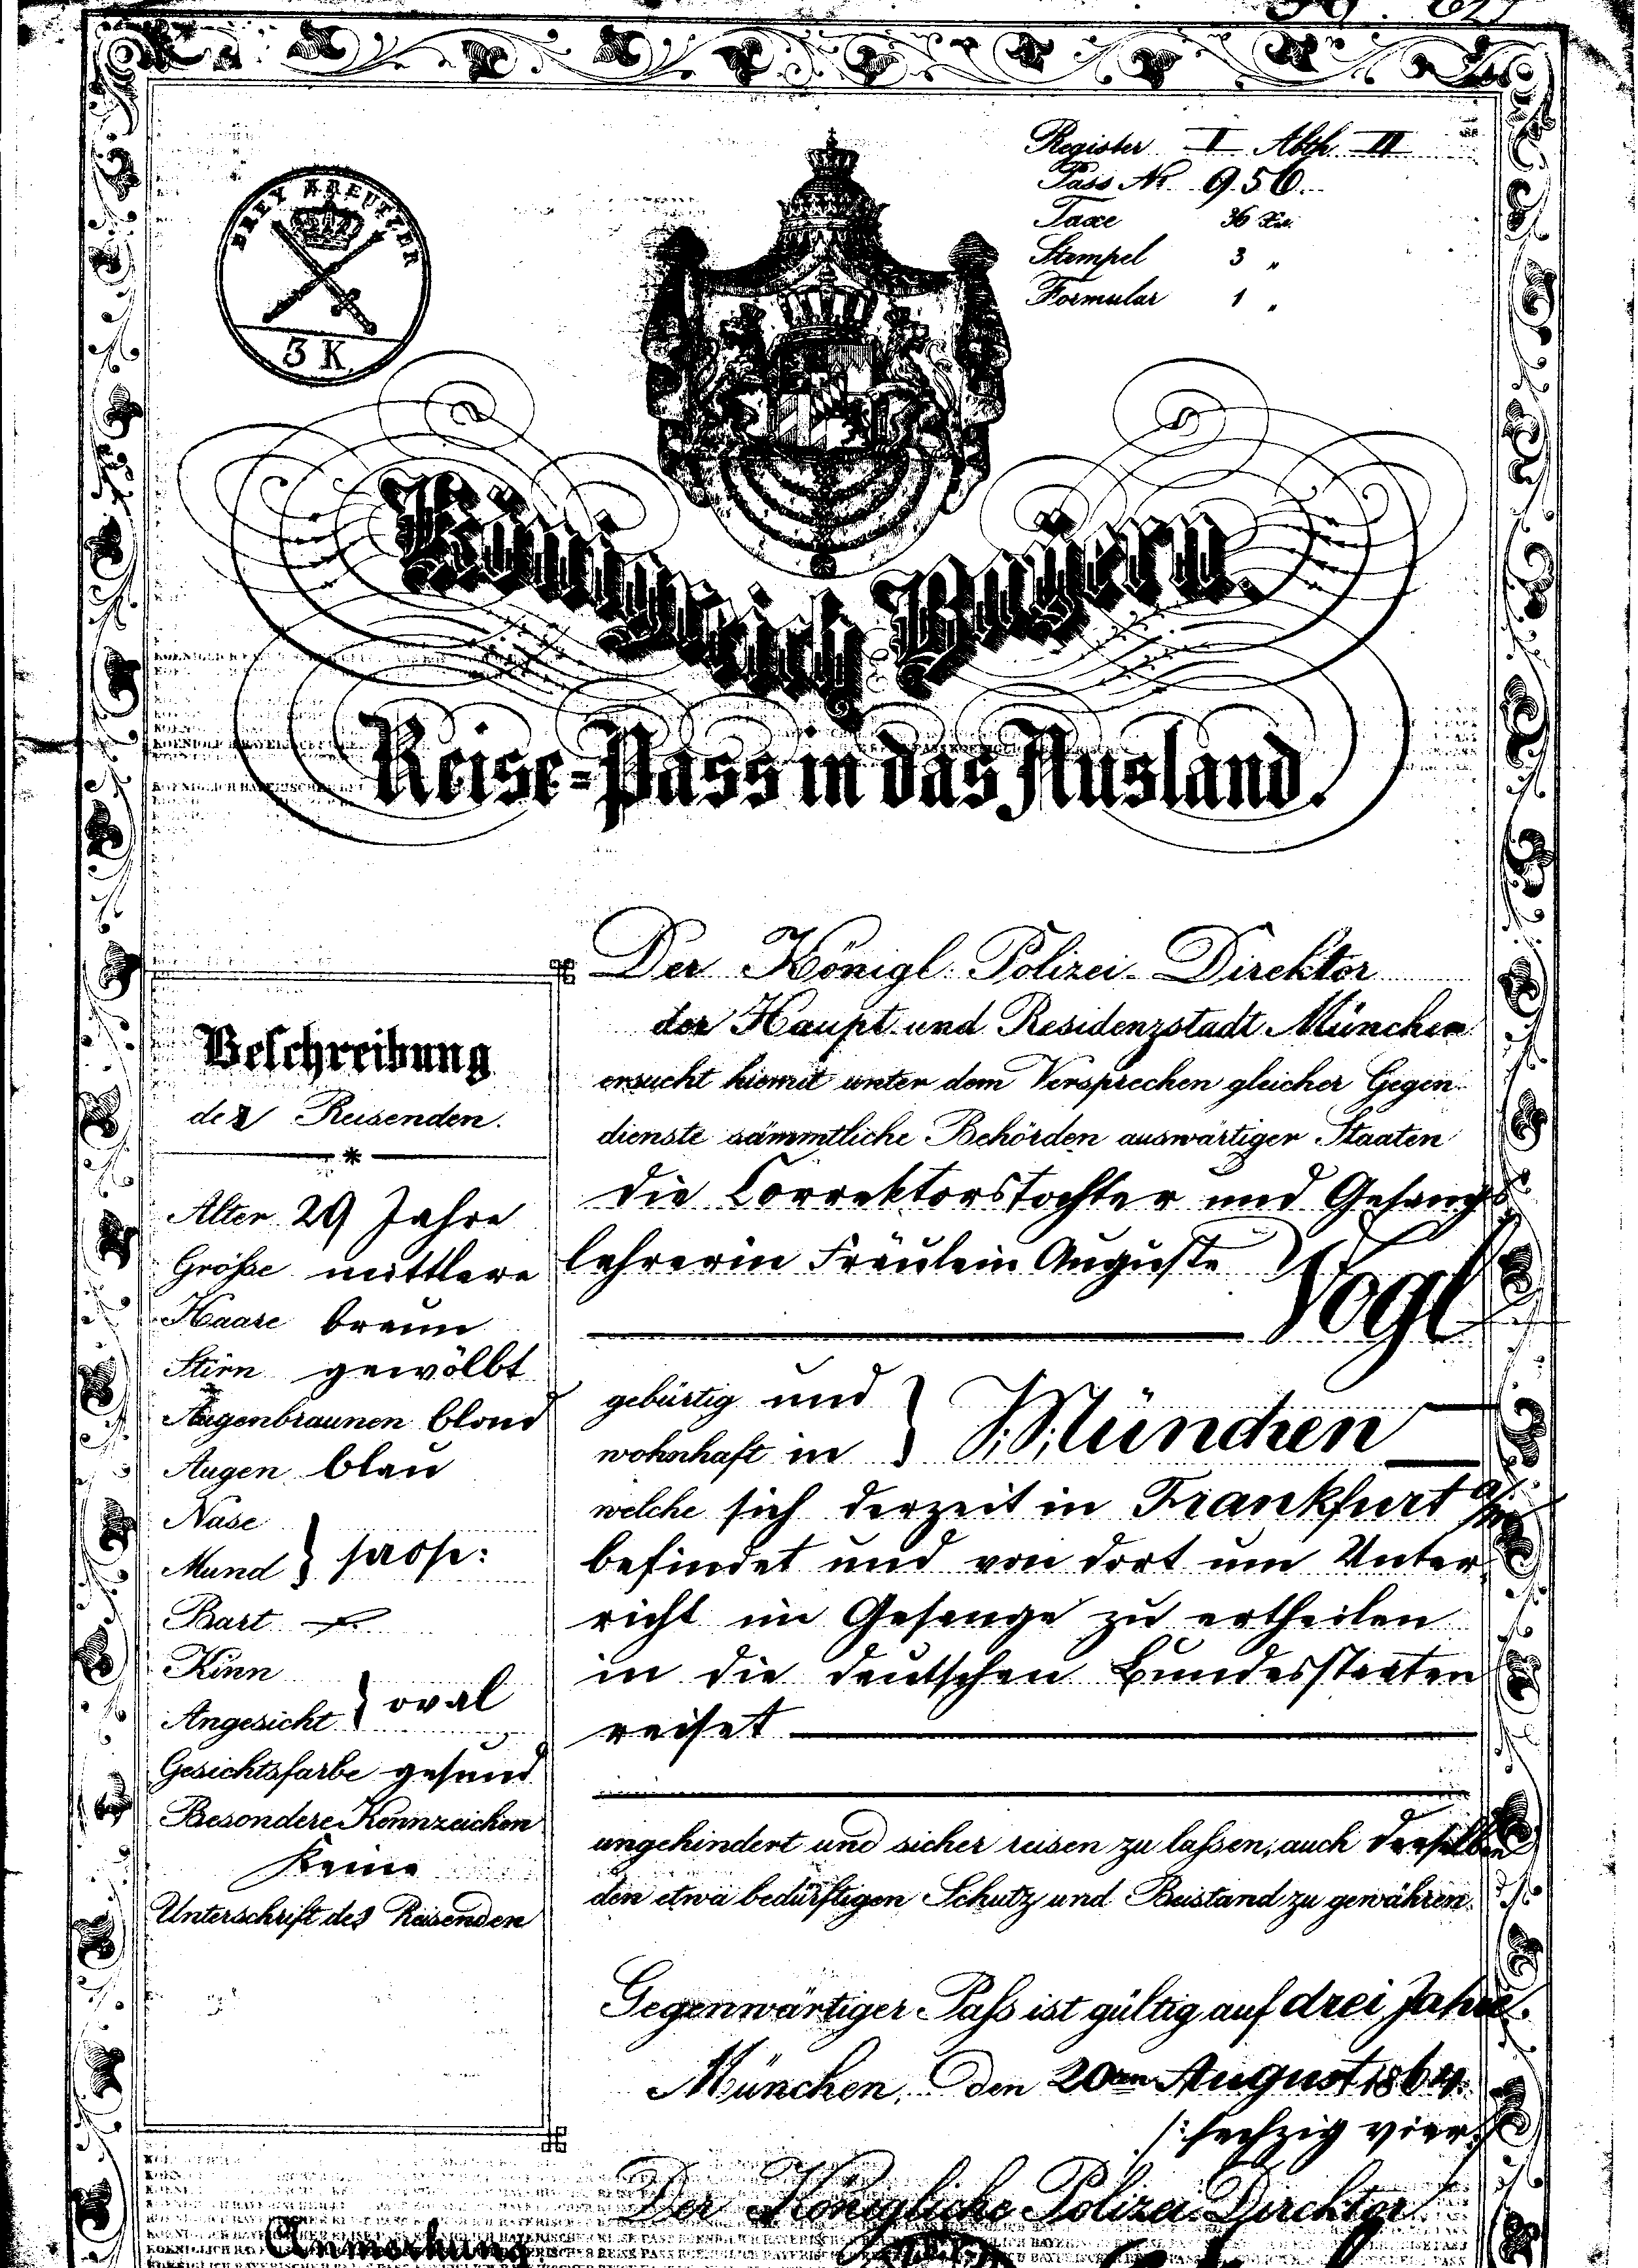 DREY KREUTZER
3 K.
Register I Abth. II
Pass Nr. 956.
Taxe 36 Kr.
Stempel 3 "
Formular 1 "
Königreich Bayern.
Reise=Pass in das Ausland.
Beschreibung
der Reisenden.
Alter 29 Jahre
Größe mittlere
Haare braun
Stirn gewölbt
Augenbraunen blond
Augen blau
Nase
Mund } prop:
Bart
Kinn
Angesicht } oval
Gesichtsfarbe gesund
Besondere Kennzeichen
keine
Unterschrift des Reisenden
Der Königl. Polizei-Direktor
der Haupt und Residenzstadt München
ersucht hiemit unter dem Versprechen gleicher Gegen-
dienste sämmtliche Behörden auswärtiger Staaten
die Correktorstochter und Gesangs-
lehrerin Fräulein Auguste Vogl
gebürtig und
wohnhaft in } München
welche sich derzeit in Frankfurt a/M
befindet und von dort um Unter-
richt im Gesange zu ertheilen
in die deutschen Bundesstaaten
reiset
ungehindert und sicher reisen zu laßen, auch derselben
den etwa bedürftigen Schutz und Beistand zu gewähren.
Gegenwärtiger Paß ist gültig auf drei Jahre.
München, den 20ten August 1864.
/: sechzig vier :/
Der Königliche Polizei-Direktor
Anmerkung